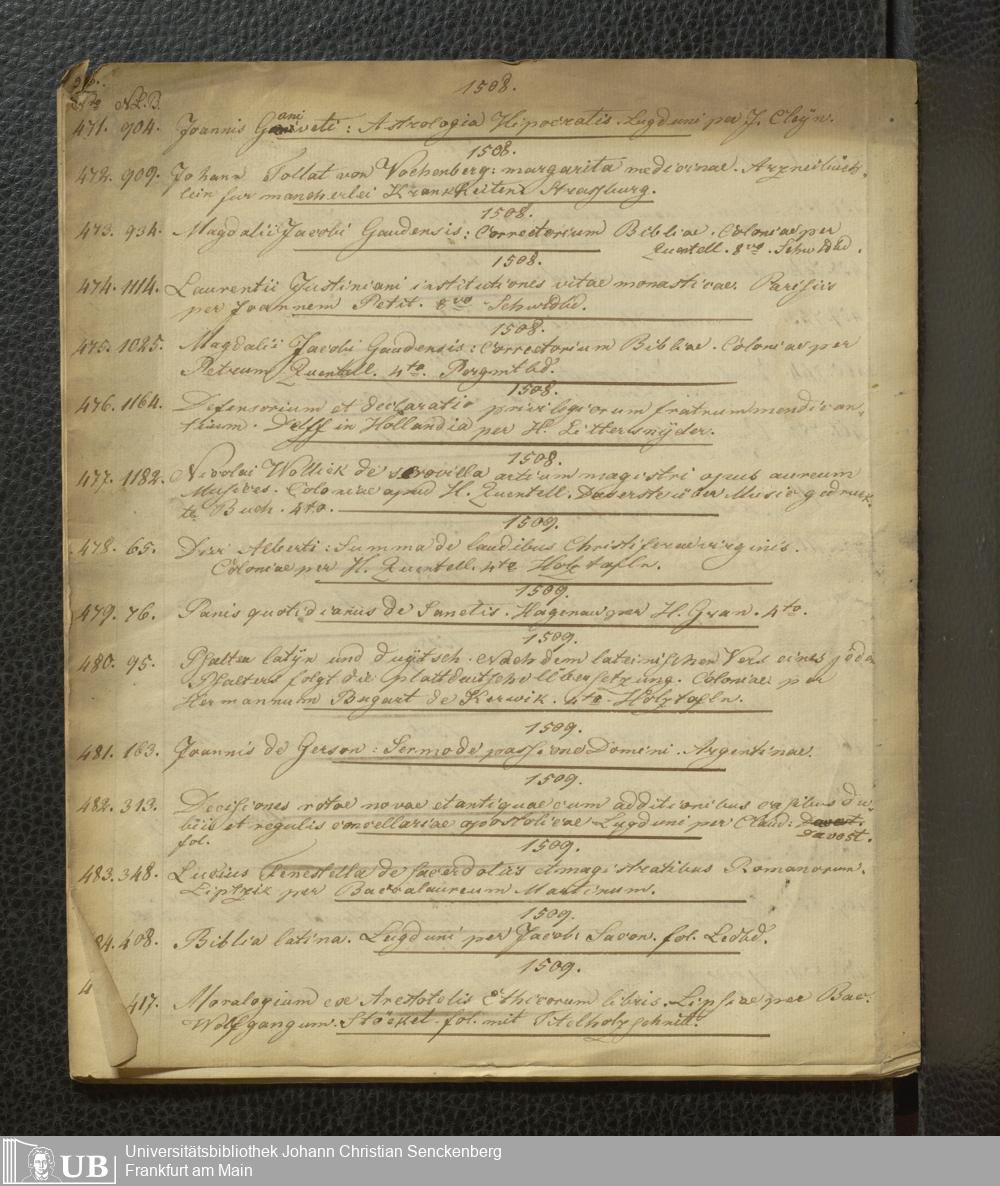 1508.
No N.B.
471. 904. Joannis Ganiveti: Astrologia Hipocratis. Lugduni per J. Cleÿn.
1508.
472. 909. Johann Tollat von Vochenberg: margarita medicinae. Arzneibüch-
lein fur mancherlei Krankheiten. Strassburg.
1508.
473. 934. Magdalii Jacobi Gaudensis: Correctorium Bibliae. Coloniae per
Quentell. 8vo. Schwldbd.
1508.
474. 1114. Laurentii Justiniani institutiones vitae monasticae. Parisiis
per Joannem Petit. 8vo Schwldbd.
1508.
475. 1085. Magdalii Jacobi Gaudensis: Correctorium Bibliae. Coloniae per
Petrum Quentell. 4to. Pergmtbd.
1508.
476. 1164. Defensorium et declaratio privilegiorum fratrum mendican-
tium. Delff in Hollandia per H. Lettersnÿder.
1508.
477. 1182. Nicolai Wollick de serovilla artium magistri opus aureum
Musices. Coloniae apud H. Quentell. Das erste über Music gedruck-
te Buch. 4to.
1509.
478. 65. Divi Alberti: Summa de laudibus Christiferae virginis.
Coloniae per H. Quentell. 4to Holztafln.
1509.
479. 76. Panis quotidianus de Sanctis. Hagenau per H. Gran. 4to.
1509.
480. 95. Psalter latÿn und duÿtsch. Nach dem lateinischen Vers eines jeden
Psalters folgt die plattdeutsche Übersetzung. Coloniae per
Hermannum Bugart de Kerwik. 4to. Holztafln.
1509.
481. 163. Joannis de Gerson: Sermo de passione Domini. Argentinae.
1509.
482. 313. Decisiones rotae novae et antiquae cum additionibus casibus du-
biis et regulis cancellariae apostolicae Lugduni per Claud: Davost.
fol.
1509.
483. 348. Lucius Fenestella de sacerdotiis et magistratibus Romanorum.
Liptzik per Baccalaureum Martinum.
1509.
84. 408. Biblia latina. Lugduni per Jacob: Sacon. fol. Ledbd.
1509.
4 417. Moralogium ex Arestotelis Ethicorum libris. Lipsiae per Bac.
Wolfgangum Stöckel. fol. mit Titelholzschnitt.
UB Universitätsbibliothek Johann Christian Senckenberg
Frankfurt am Main